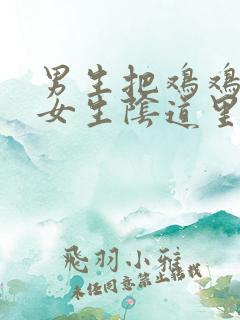 男生把鸡鸡
女生陰道里
飛羽小雅
未经同意禁止转载